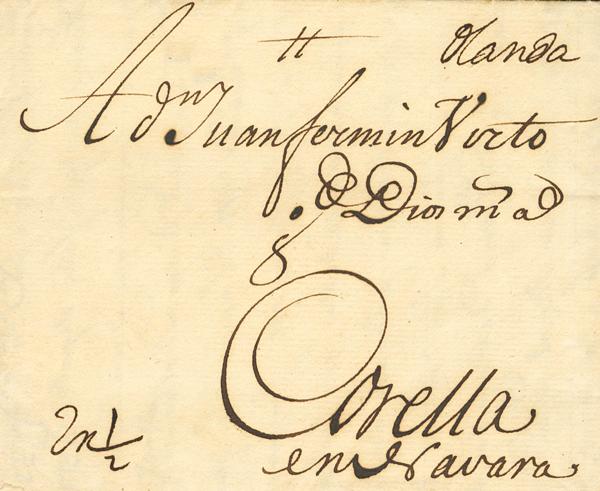 tt Olanda
A dn Juan fermin Virto
g Dios ma
Corella
en Navara
2 rs 1/2